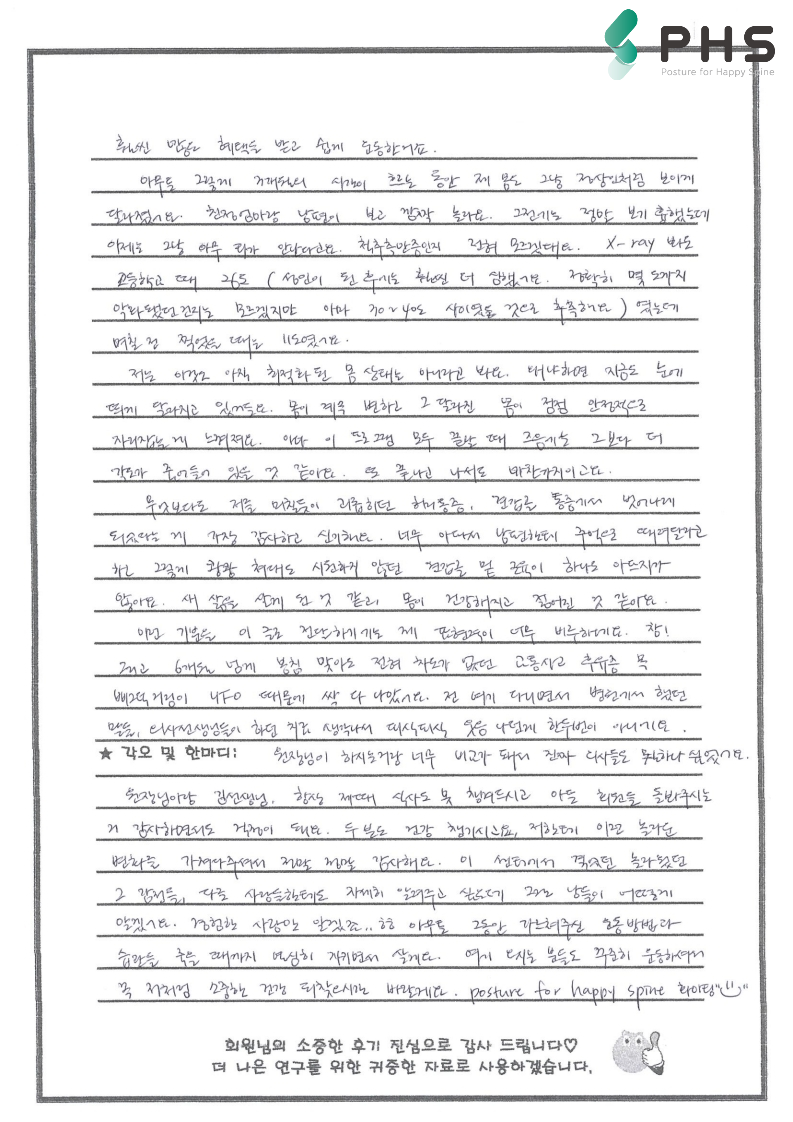 PHS
Posture for Happy Spine
훨씬 많은 혜택을 받고 쉽게 운동한거죠.
아무튼 그렇게 시간이 흐르는 동안 제 몸도 그냥 정상인처럼 보이게
달라졌어요. 친정엄마랑 남편이 보고 깜짝 놀라요. 그전에는 정말 보기 흉했는데
이제는 그냥 아무 티가 안난다고요. 척추측만증인지 전혀 모르겠대요. X-ray 봐도
고등학교 때 26도 (성인이 된 후에는 훨씬 더 심했어요. 정확히 몇 도까지
악화됐었던건지는 모르겠지만 아마 30~40도 사이였을 것으로 추측해요) 였는데
며칠 전 찍었을 때는 11도였어요.
저는 이것도 아직 최적화된 몸 상태는 아니라고 봐요. 왜냐하면 지금도 눈에
띄게 달라지고 있거든요. 몸이 계속 변하고 그 달라진 몸이 점점 안정적으로
자리잡는게 느껴져요. 아마 이 프로그램 모두 끝날 때 즈음에는 그보다 더
각도가 줄어들어 있을 것 같아요. 또 끝나고 나서도 마찬가지이고요.
무엇보다도 저를 미칠듯이 괴롭히던 허리통증, 견갑골 통증에서 벗어나게
되었다는 게 가장 감사하고 신기해요. 너무 아파서 남편한테 주먹으로 때려달라고
하고 그렇게 쾅쾅 쳐대도 시원하지 않던 견갑골 밑 근육이 하나도 아프지가
않아요. 새 삶을 살게 된 것 같고, 몸이 건강해지고 젊어진 것 같아요.
이런 기분을 이 글로 전달하기에는 제 표현력이 너무 비루하네요. 참!
그리고 6개월 넘게 봉침 맞아도 전혀 차도가 없었던 교통사고 후유증 목
삐걱거림이 UFO 때문에 싹 다 나았어요. 전 여기 다니면서 병원에서 했던
말들, 의사선생님들이 하던 치료 생각나서 피식피식 웃음 나던게 한두번이 아니에요.
★ 각오 및 한마디: 원장님이 하시는거랑 너무 비교가 돼서 진짜 의사들도 뭣하나 싶었어요.
원장님이랑 김선생님. 항상 제때 식사도 못 챙겨드시고 아픈 회원들 돌봐주시는
거 감사하면서도 걱정이 돼요. 두 분도 건강 챙기시고요, 저한테 이런 놀라운
변화를 가져다주셔서 정말 정말 감사해요. 이 센터에서 겪었던 놀라웠던
그 감정들, 다른 사람들한테도 자세히 알려주고 싶은데 그걸 남들이 어떻게
알겠어요. 경험한 사람만 알겠죠.. ㅎㅎ 아무튼 그동안 가르쳐주신 운동방법과
습관들 죽을 때까지 열심히 지키면서 살게요. 여기 오시는 분들도 꾸준히 운동하셔서
꼭 저처럼 소중한 건강 되찾으시길 바랄게요. posture for happy spine 화이팅"
회원님의 소중한 후기 진심으로 감사 드립니다♡
더 나은 연구를 위한 귀중한 자료로 사용하겠습니다.